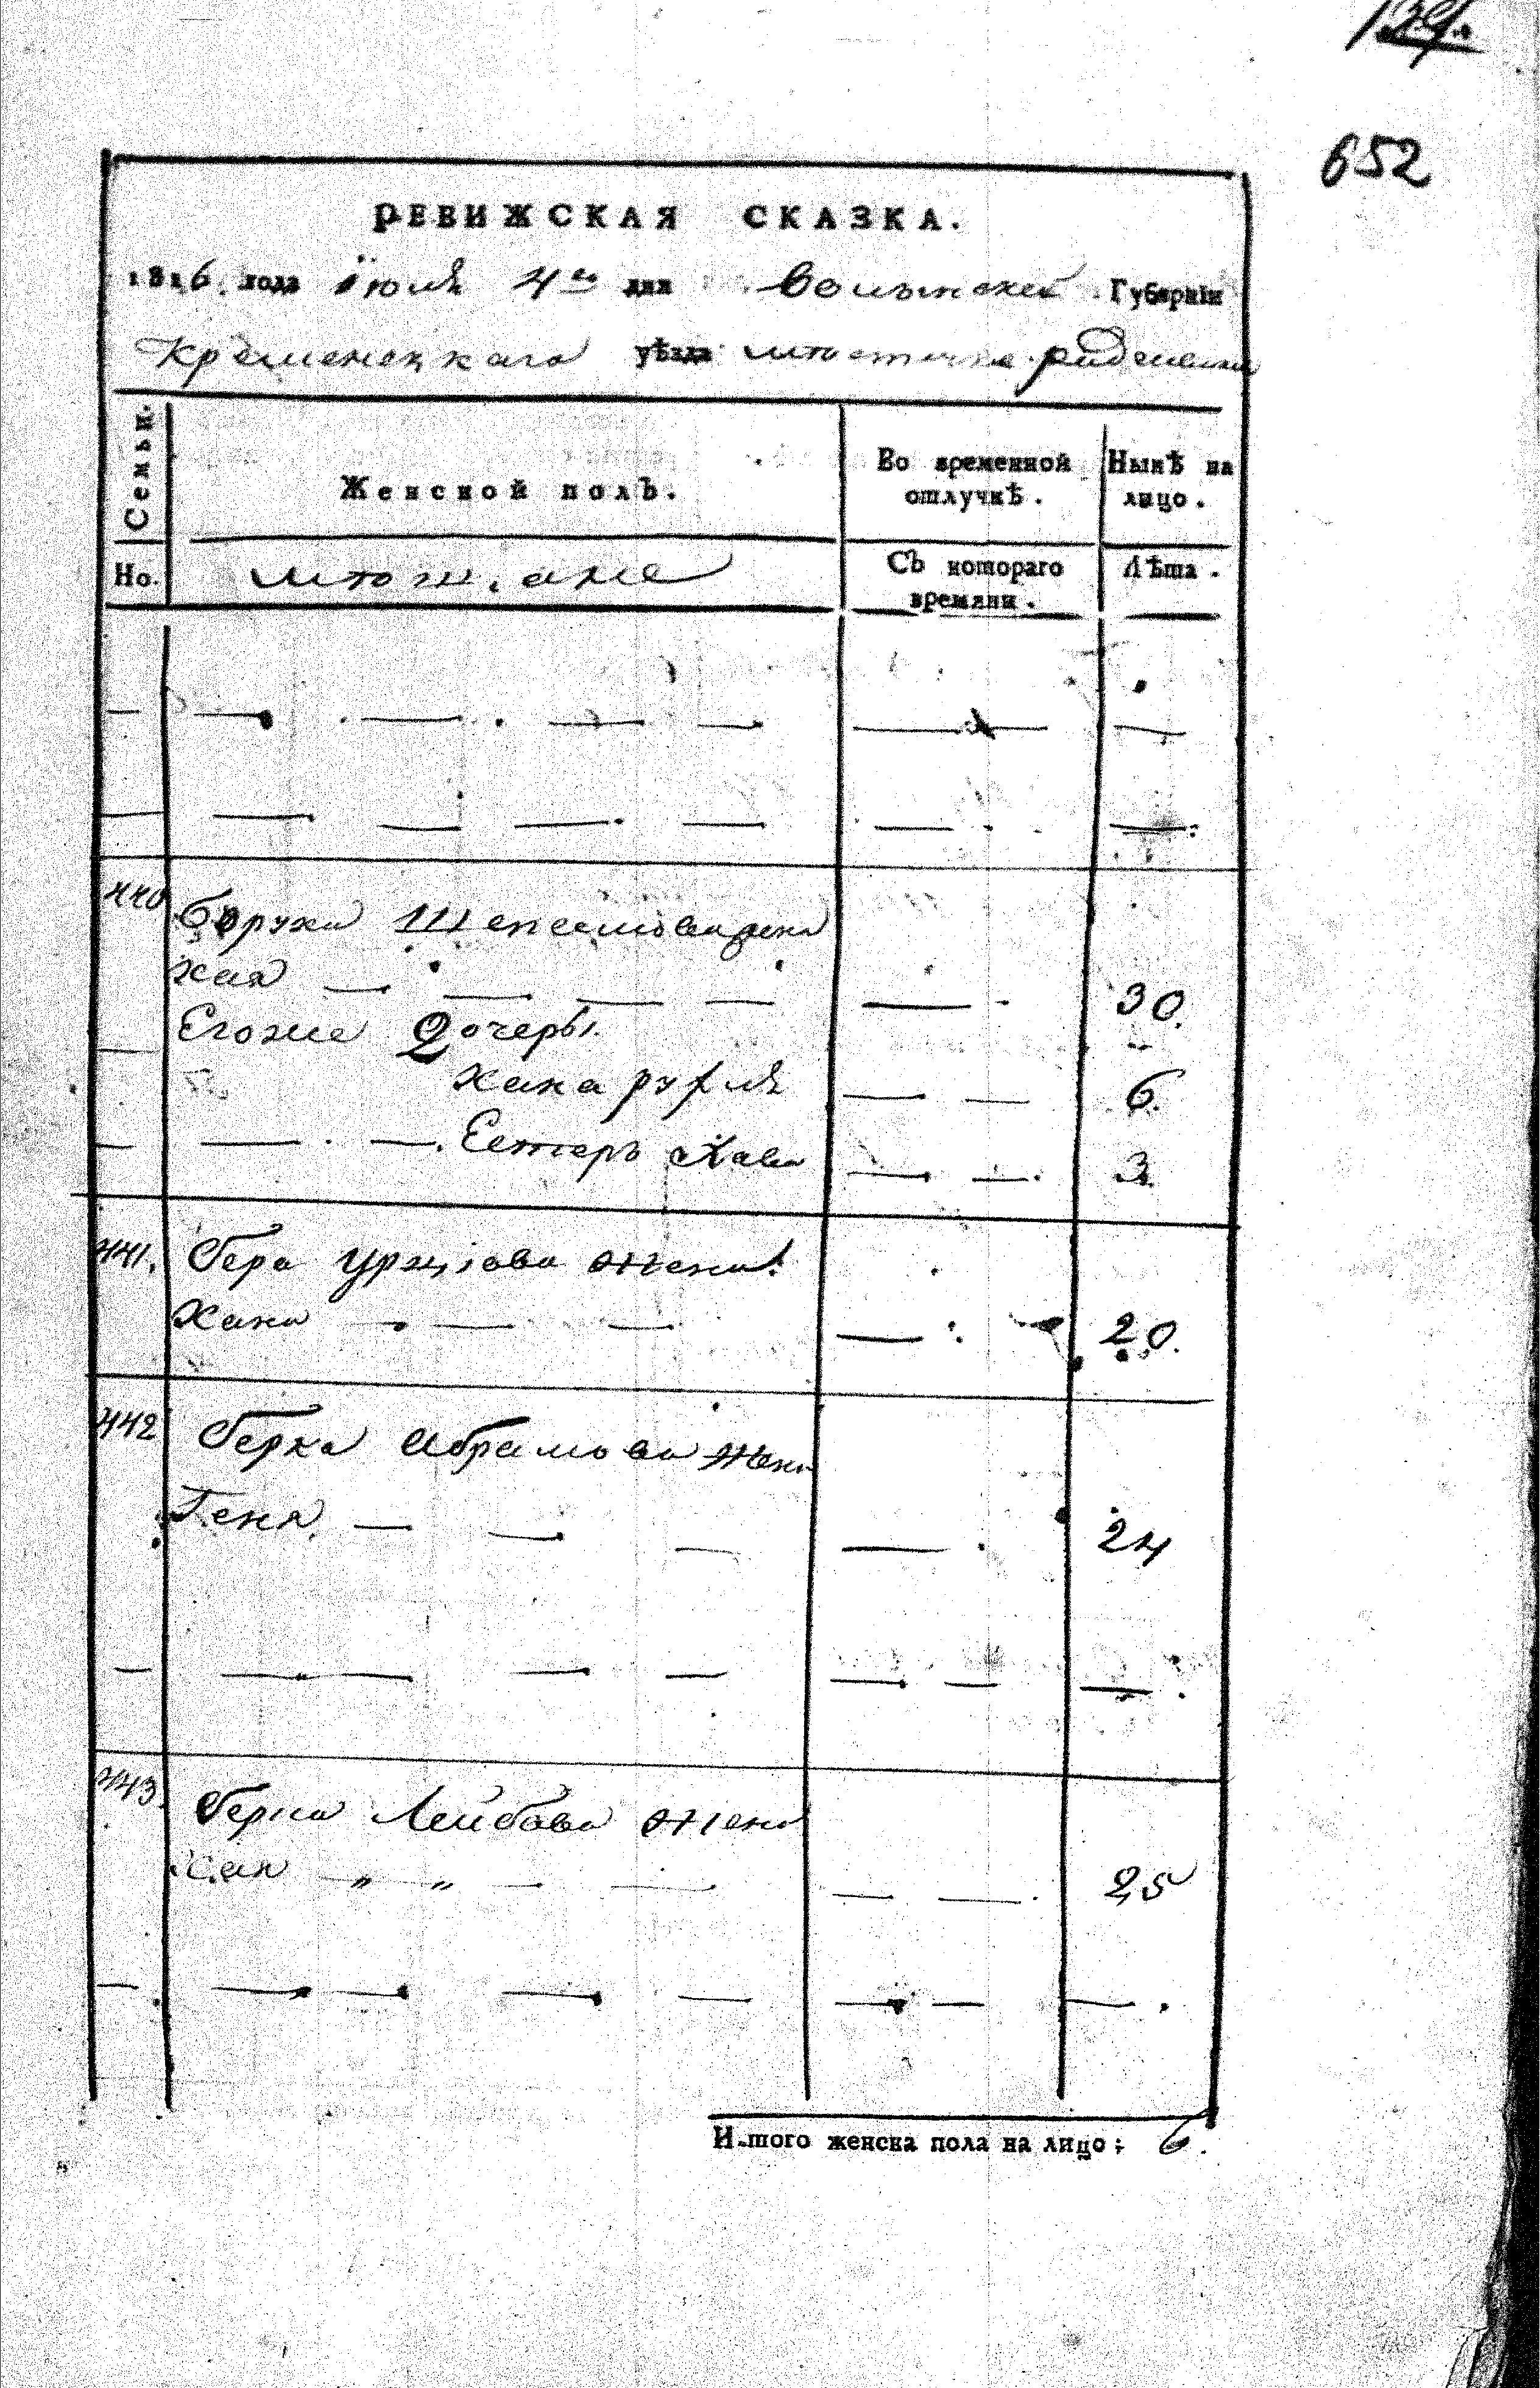 652
РЕВИЖСКАЯ СКАЗКА.
1816. года Іюля 4го дня Волынской Губерніи
Кременецкаго уѣзда местечка
Семьи.
Женской полъ.
Во временной отлучкѣ.
Нынѣ на лицо.
Но.
Съ котораго времяни.
Лѣта.
440 Боруха Шепселова жена
Хая — — — — — 30.
Егоже дочеры.
Хана Рухля — — 6.
— — — Естеръ Хава — — 3.
441. Бера Урціова жена.
Хана — — — — 20.
442 Берка Абрамова жена
Геня. — — — — 24
443. Берка Лейбова жена
„ „ — — — — 25
И-того женска пола на лицо: 6.